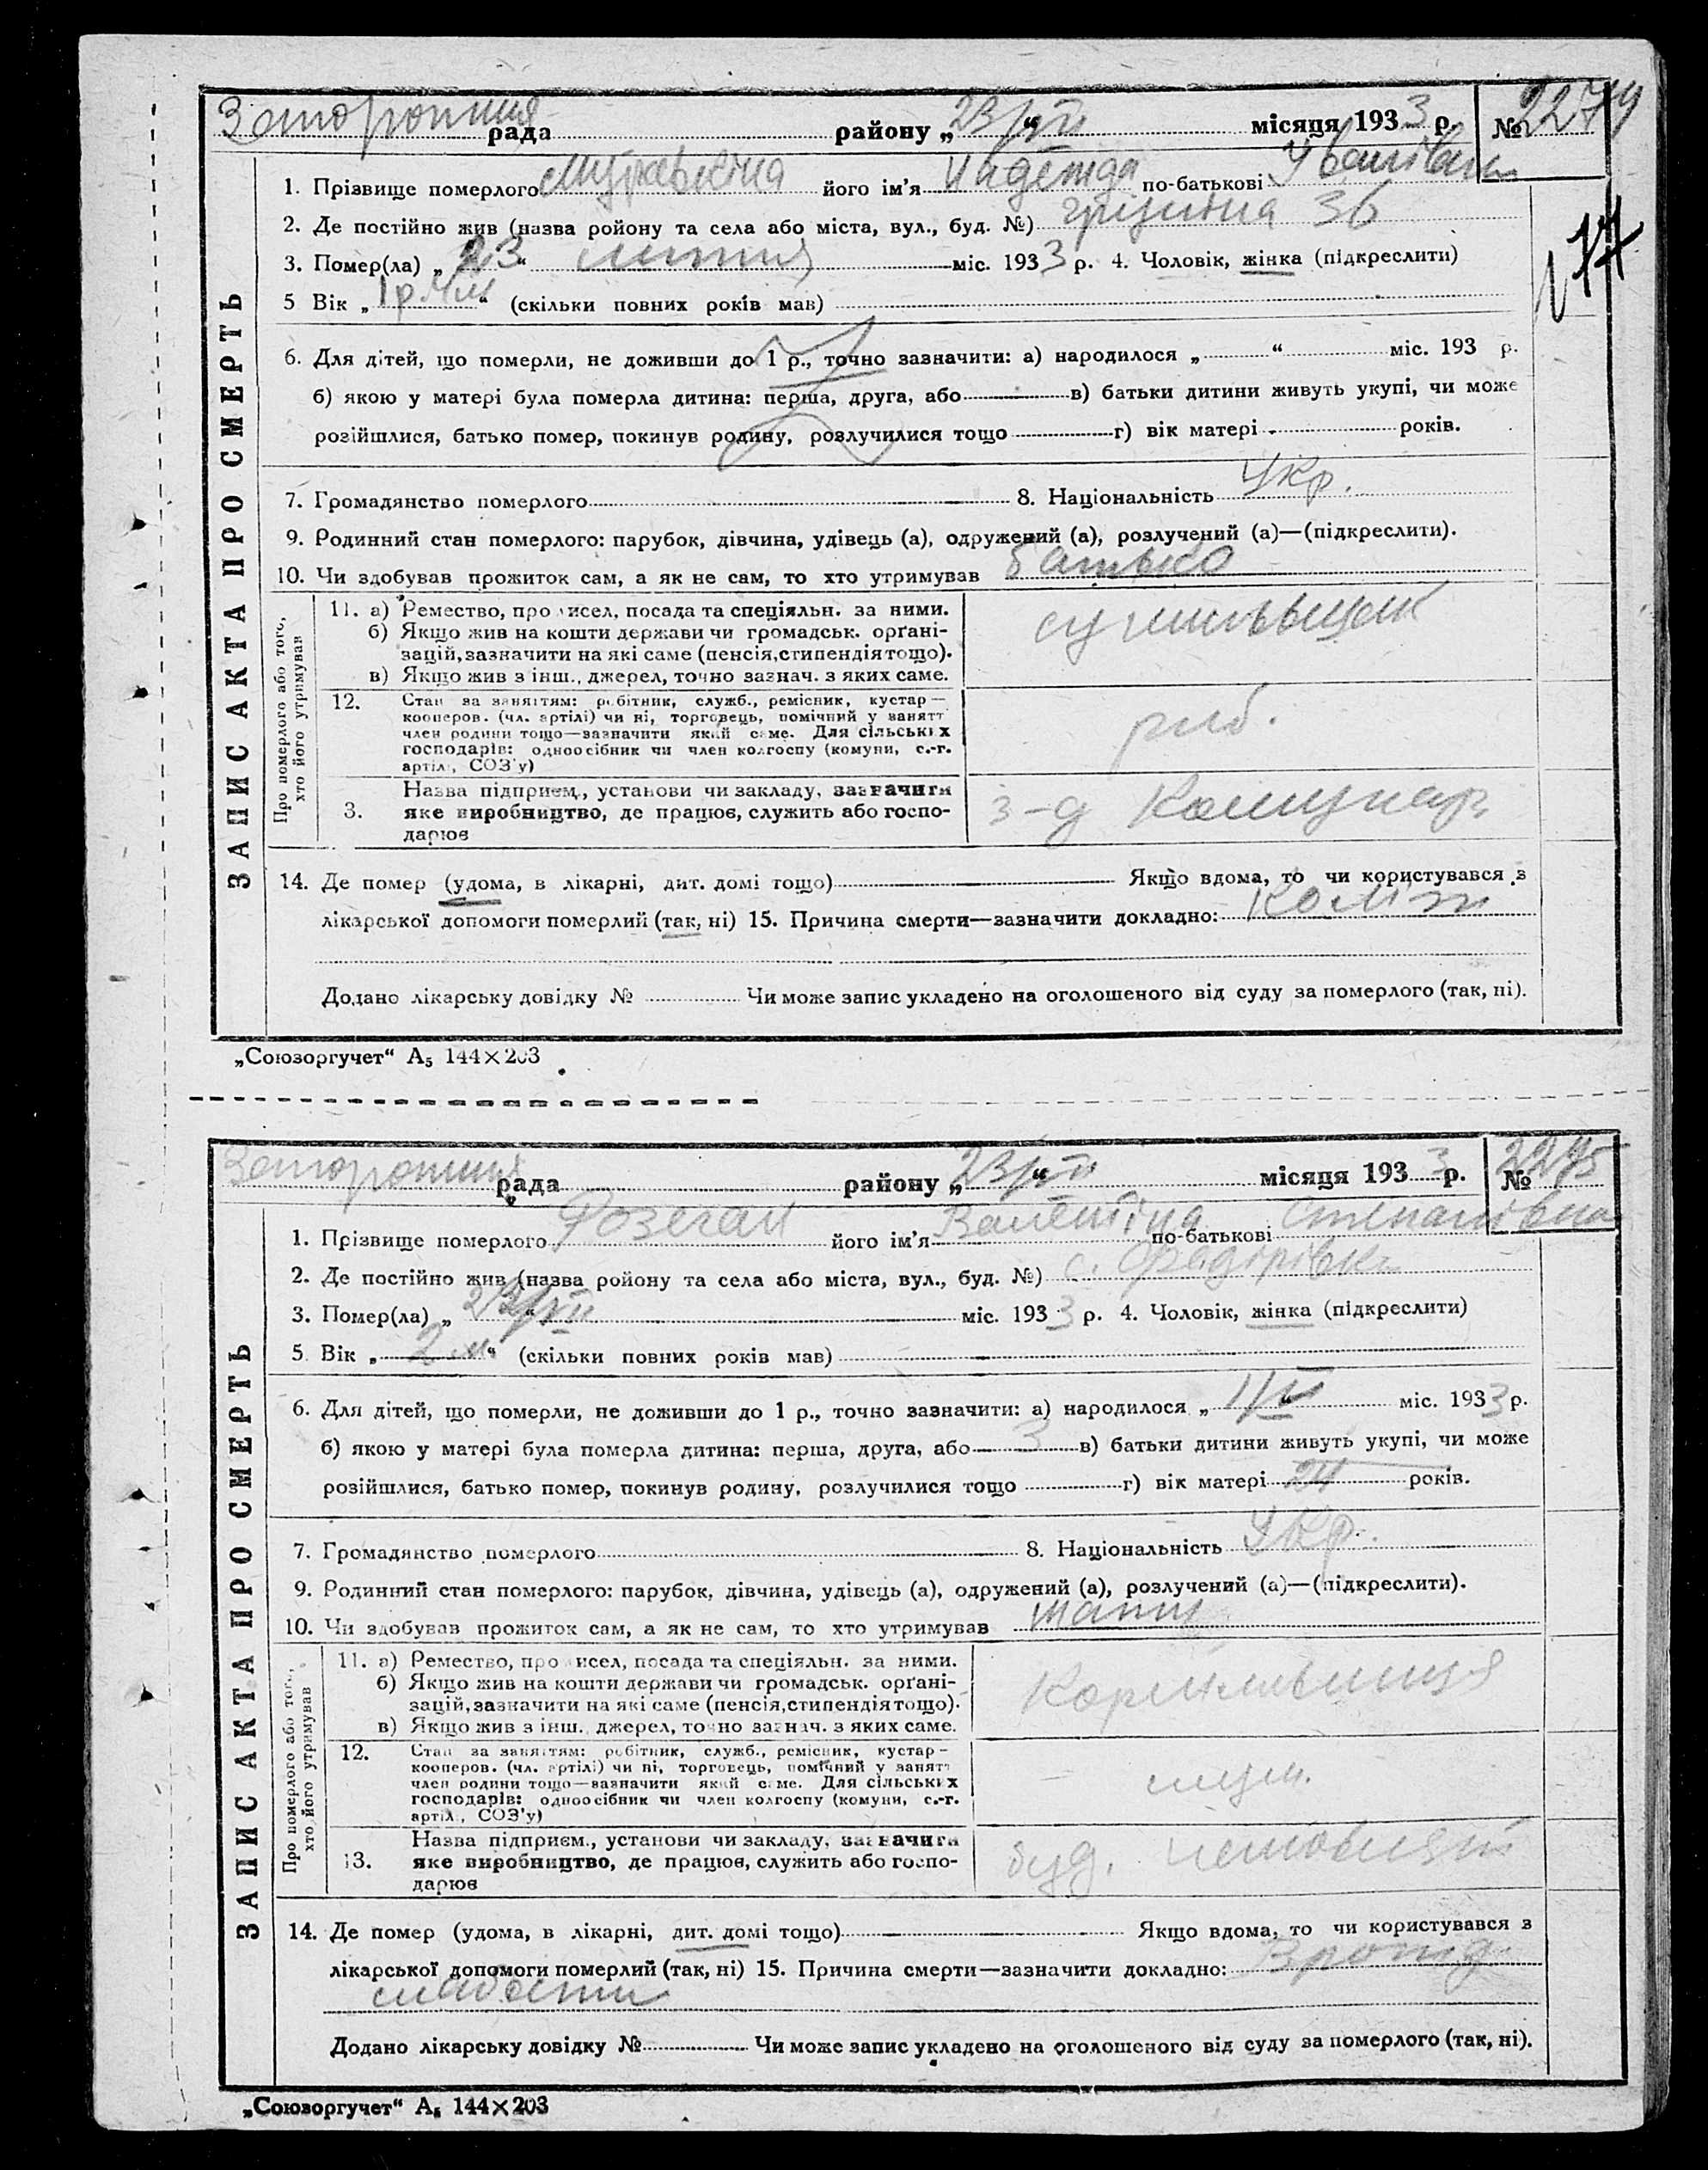 рада району „23/VII“ місяця 1933 р. №2274
1. Прізвище померлого його ім’я Надежда по-батькові Іванівна
2. Де постійно жив (назва ройону та села або міста, вул., буд. №) 36
17
3. Помер(ла) „23“ липня міс. 1933 р. 4. Чоловік, жінка (підкреслити)
5 Вік „1 р. “ (скільки повних років мав)
6. Для дітей, що померли, не доживши до 1 р., точно зазначити: а) народилося „ “ міс. 193 р.
б) якою у матері була померла дитина: перша, друга, або в) батьки дитини живуть укупі, чи може
розійшлися, батько помер, покинув родину, розлучилися тощо г) вік матері років.
7. Громадянство померлого 8. Національність Укр.
9. Родинний стан померлого: парубок, дівчина, удівець (а), одружений (а), розлучений (а)—(підкреслити).
10. Чи здобував прожиток сам, а як не сам, то хто утримував батько
ЗАПИС АКТА ПРО СМЕРТЬ
Про померлого або того, хто його утримував
11. а) Ремество, про исел, посада та спеціяльн. за ними.
б) Якщо жив на кошти держави чи громадськ. орґані-
зацій, зазначити на які саме (пенсія, стипендія тощо).
в) Якщо жив з інш., джерел, точно зазнач. з яких саме.
12. Стан за заняттям: робітник, служб., ремісник, кустар—
кооперов. (чл. артілі) чи ні, торговець, помічний у занятт
член родини тощо—зазначити який саме. Для сільських
господарів: одноосібник чи член колгоспу (комуни, с.-г.
артіл., СОЗ’у)
роб.
Назва підприєм., установи чи закладу, зазначити
3. яке виробництво, де працює, служить або госпо-
дарює
з-д Комунар
14. Де помер (удома, в лікарні, дит. домі тощо) Якщо вдома, то чи користувався з
лікарської допомоги померлий (так, ні) 15. Причина смерти—зазначити докладно:
Додано лікарську довідку № Чи може запис укладено на оголошеного від суду за померлого (так, ні).
„Союзоргучет“ А5 144×203
рада району „23/VII“ місяця 1933 р. №2275
1. Прізвище померлого його ім’я Валентіна по-батькові Степанівна
2. Де постійно жив (назва ройону та села або міста, вул., буд. №) с.
3. Помер(ла) „ “ міс. 1933 р. 4. Чоловік, жінка (підкреслити)
5 Вік „2 м.“ (скільки повних років мав)
6. Для дітей, що померли, не доживши до 1 р., точно зазначити: а) народилося „ “ міс. 1933 р.
б) якою у матері була померла дитина: перша, друга, або 3 в) батьки дитини живуть укупі, чи може
розійшлися, батько помер, покинув родину, розлучилися тощо г) вік матері 24 років.
7. Громадянство померлого 8. Національність Укр.
9. Родинний стан померлого: парубок, дівчина, удівець (а), одружений (а), розлучений (а)—(підкреслити).
10. Чи здобував прожиток сам, а як не сам, то хто утримував мати
ЗАПИС АКТА ПРО СМЕРТЬ
Про померлого або того, хто його утримував
11. а) Ремество, про исел, посада та спеціяльн. за ними.
б) Якщо жив на кошти держави чи громадськ. орґані-
зацій, зазначити на які саме (пенсія, стипендія тощо).
в) Якщо жив з інш. джерел, точно зазнач. з яких саме.
Кормилниця
12. Стан за заняттям: робітник, служб., ремісник, кустар—
кооперов. (чл. артілі) чи ні, торговець, помічний у занятт
член родини тощо—зазначити який саме. Для сільських
господарів: одноосібник чи член колгоспу (комуни, с.-г.
артіл., СОЗ’у)
Назва підприєм., установи чи закладу, зазначити
13. яке виробництво, де працює, служить або госпо-
дарює
буд. немовлят
14. Де помер (удома, в лікарні, дит. домі тощо) Якщо вдома, то чи користувався з
лікарської допомоги померлий (так, ні) 15. Причина смерти—зазначити докладно: Врожд.
слабости
Додано лікарську довідку № Чи може запис укладено на оголошеного від суду за померлого (так, ні).
„Союзоргучет“ А5 144×203